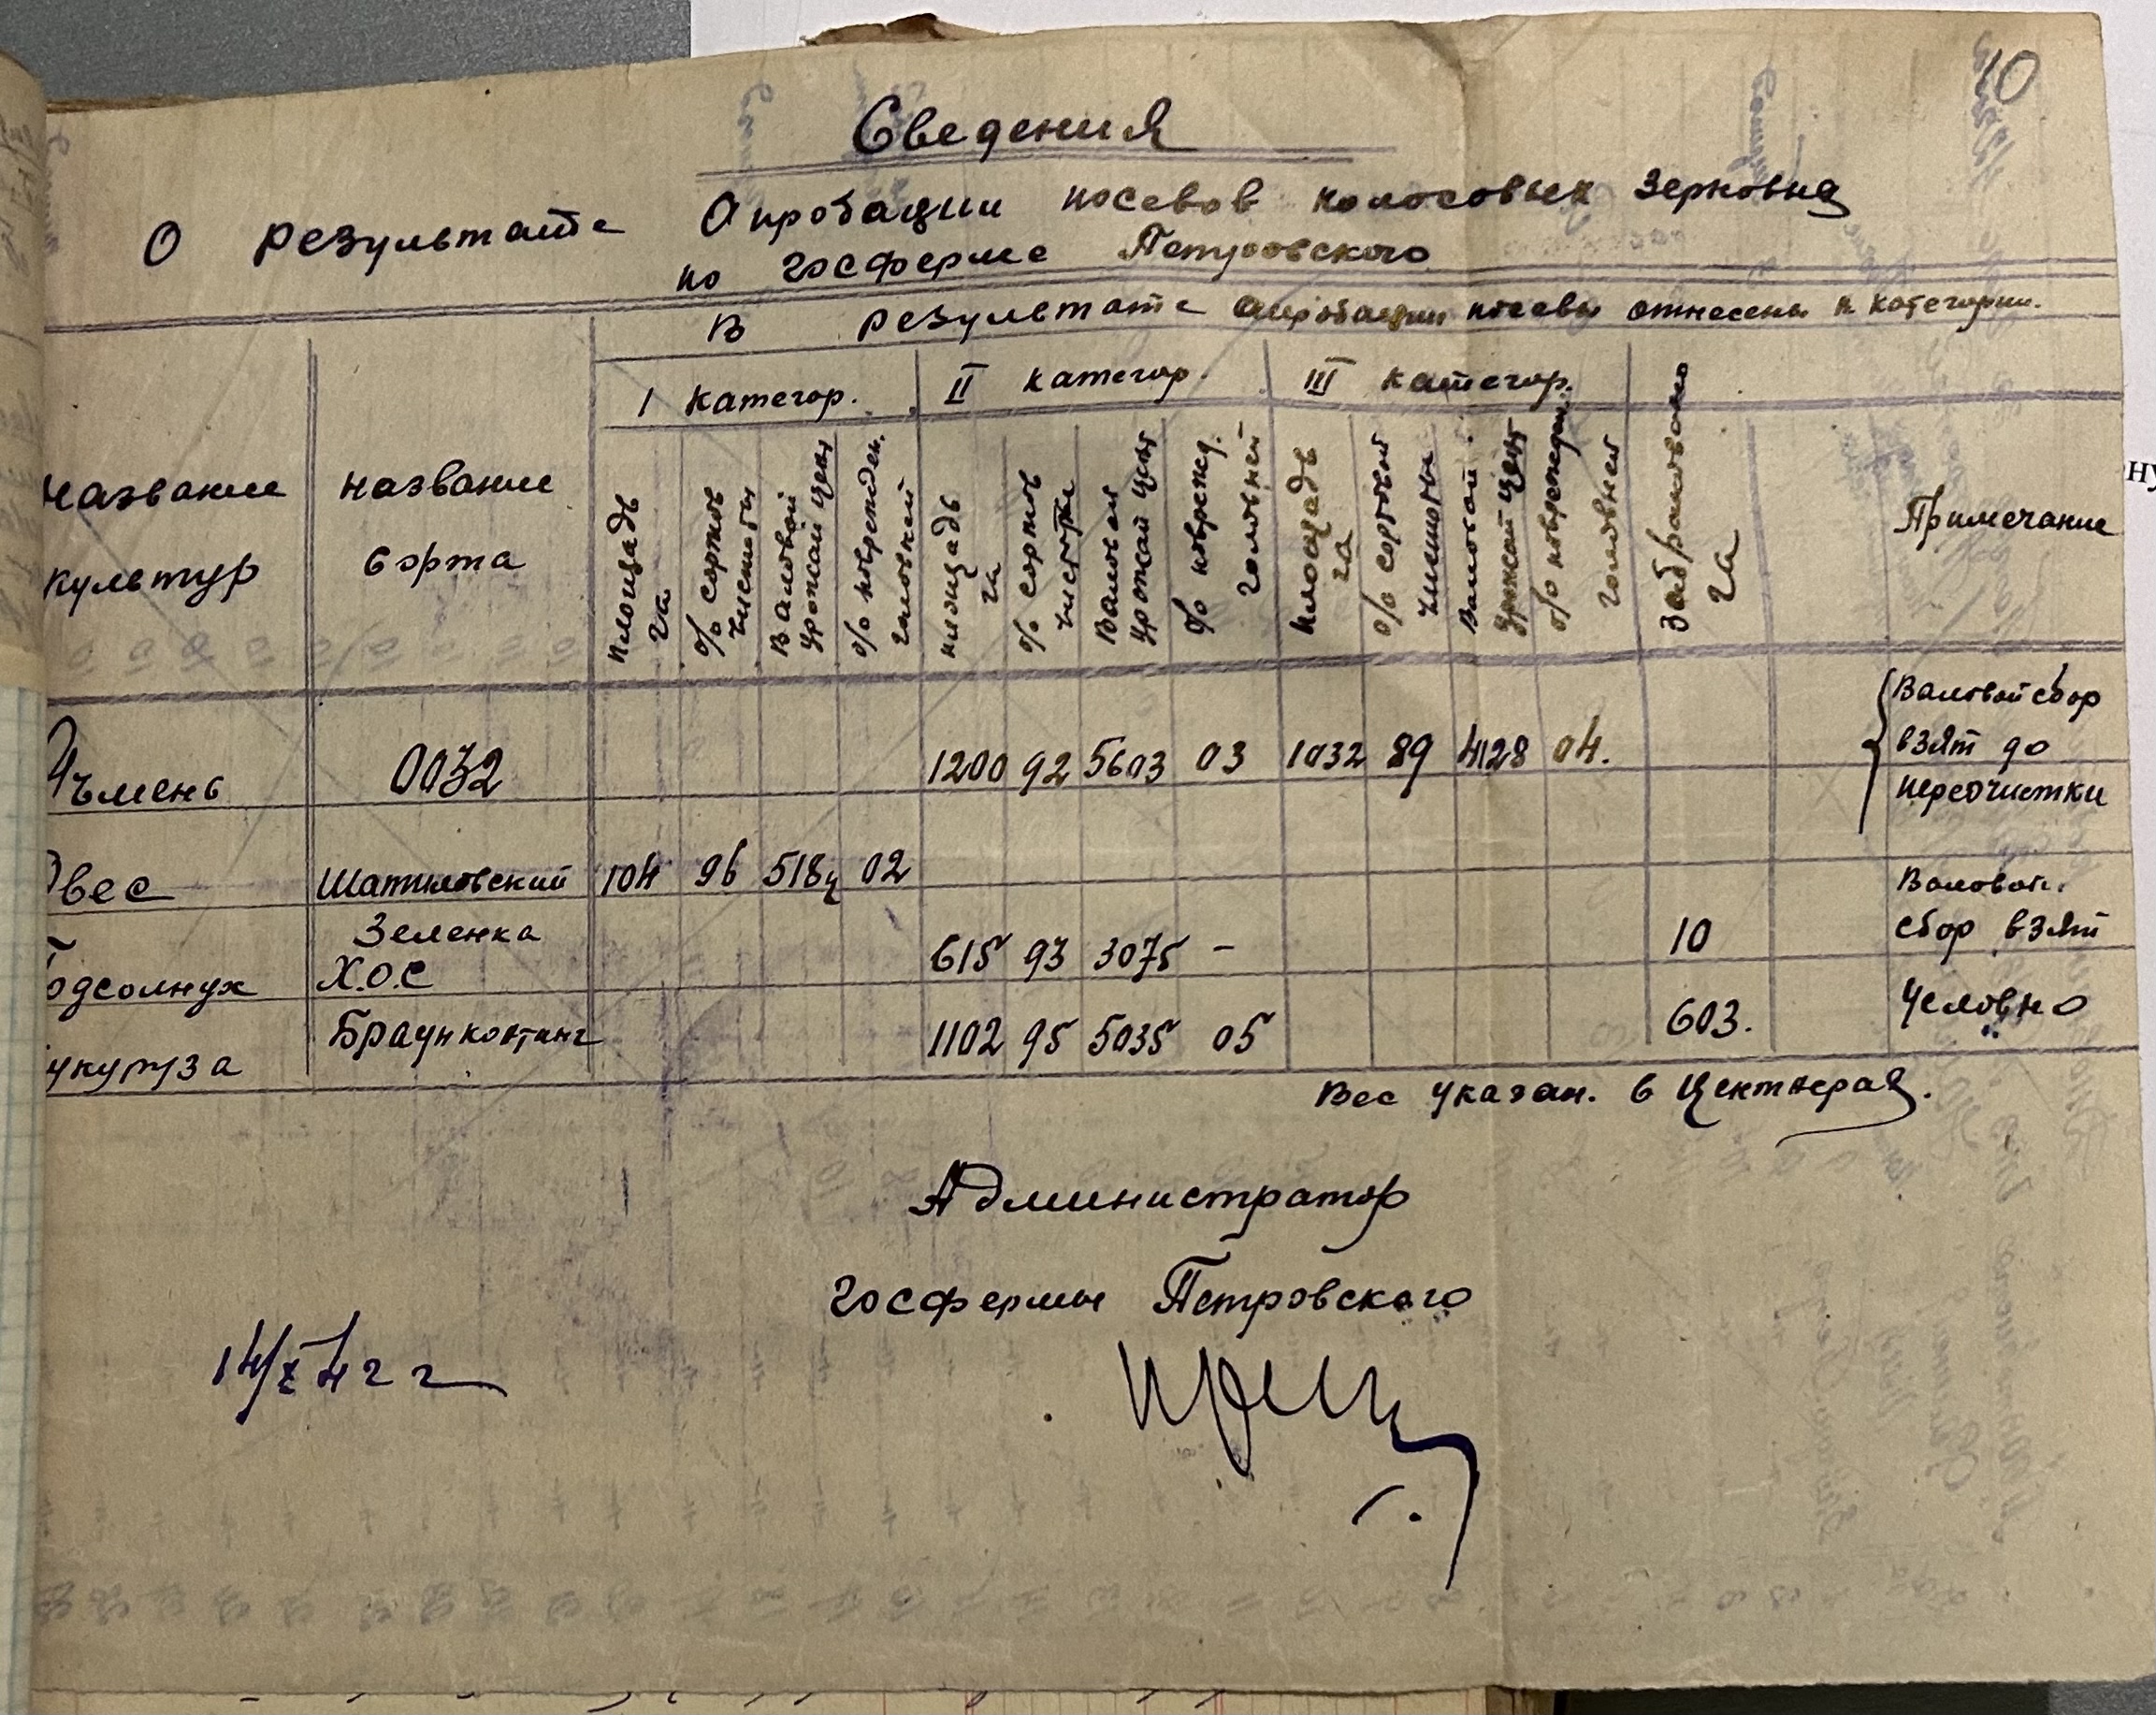 10
Сведения
О результате Апробации посевов колосовых зерновых
по госферме Петровского
В результате апробации посевы отнесены к категории.
I категор. II категор. III категор.
Название культур
название сорта
площадь га
% сортов чистоты
Валовой урожай цент
% поврежден. головней
площадь га
% сортов чистоты
Валовой урожай цент
% поврежд. головней
площадь га
% сортовой чистоты
Валовой урожай цент
% поврежден. головней
Забраковано га
Примечание
Ячмень 0032 1200 92 5603 03 1032 89 4128 04.
Валовой сбор
взят до
переочистки
Овес Шатиловский 104 96 518ц 02
Подсолнух Зеленка Х.О.С 615 93 3075 – 10
Кукуруза Браунконтинг 1102 95 5035 05 603.
Валовой.
сбор взят
Условно
Вес указан. в Центнерах.
Администратор
госфермы Петровского
14/X 42 г